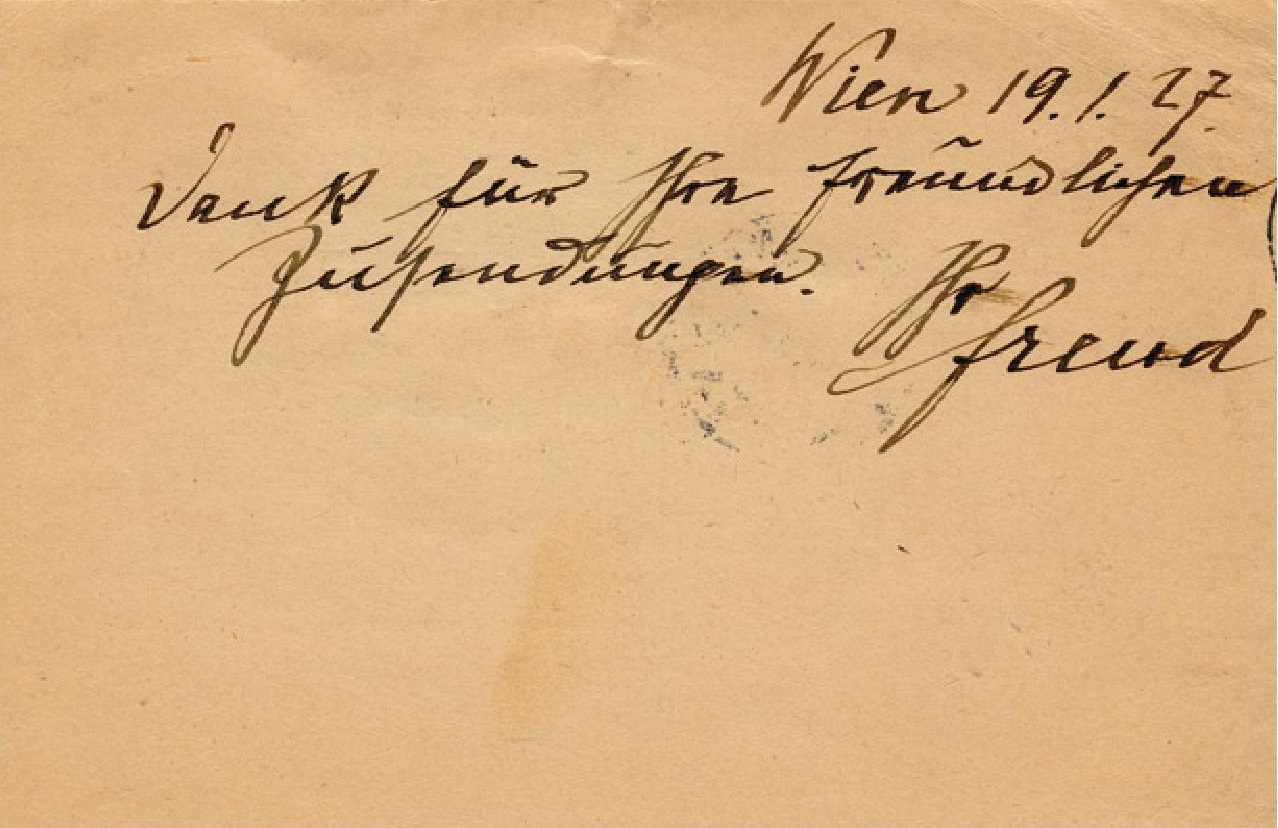 Wien 19.1.27.
Dank für Ihre freundlichen
Zusendungen.
Ihr
Freud